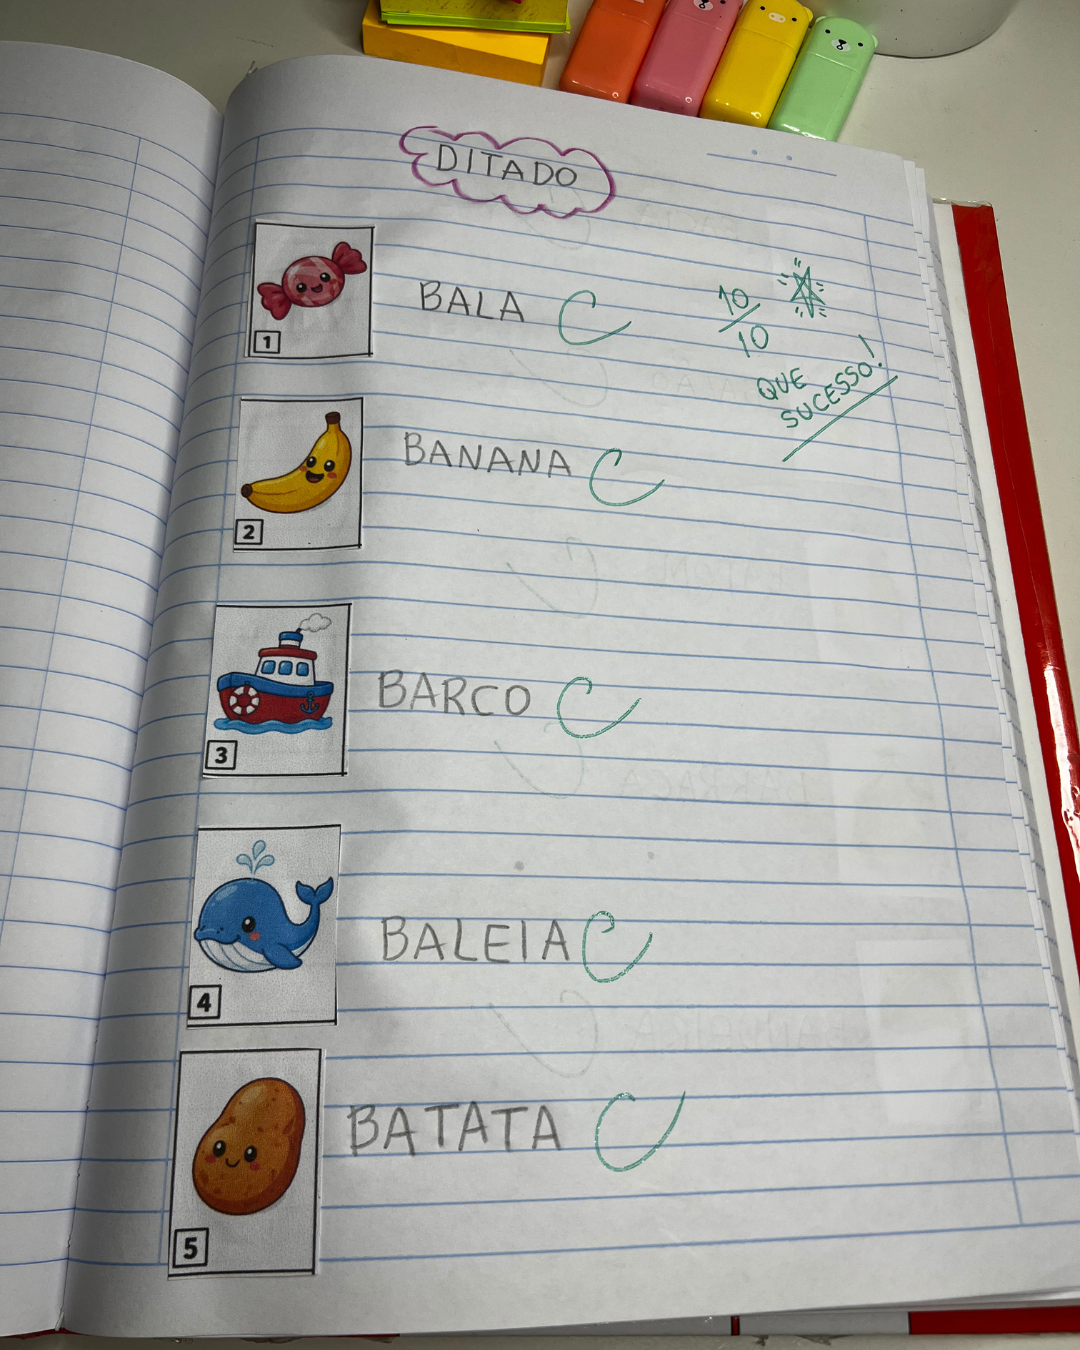 DITADO
1
BALA C
10
10
QUE
SUCESSO!
2
BANANA C
3
BARCO C
4
BALEIA C
5
BATATA C